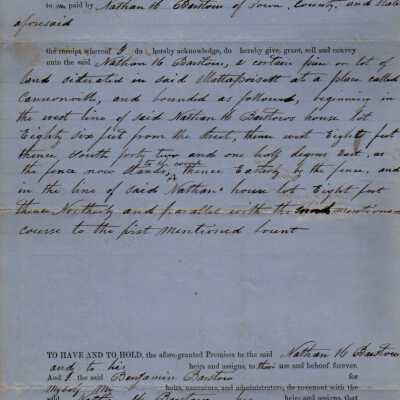 to me paid by Nathan H. Barstow of Town, County, and State
aforesaid
the receipt whereof I do hereby acknowledge, do hereby give, grant, sell and convey
unto the said Nathan H Barstow, a certain piece or lot of
land situated in said Mattapoisett at a place called
Cannonville, and bounded as follows, beginning in
the west line of said Nathan H Barstows house lot
Eighty six feet from the street, thence west Eighty feet
thence South forty two and one half degrees East, as
the fence now stands, thence Easterly by the fence, and
in the line of said Nathans house lot Eight feet
thence Northerly and parallel with the mentioned
course to the first mentioned bount
TO HAVE AND TO HOLD, the afore-granted Premises to the said Nathan H Barstow
and to his heirs and assigns, to their use and behoof forever.
And I the said Benjamin Barstow for
myself my heirs, executors, and administrators, do covenant with the
said Nathan H Barstow his heirs and assigns, that